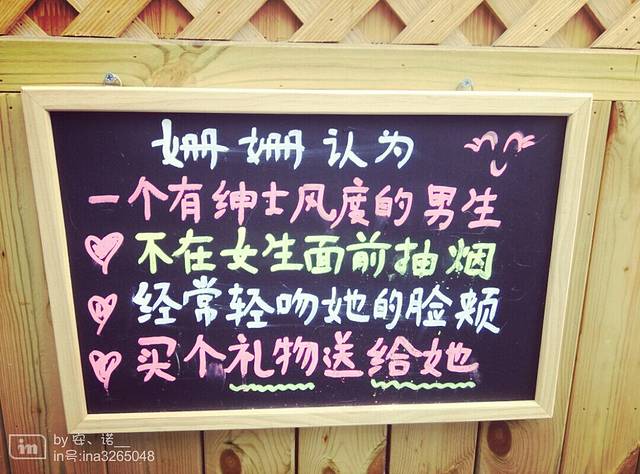 姗姗认为
一个有绅士风度的男生
不在女生面前抽烟
经常轻吻她的脸颊
买个礼物送给她
in by 安、诺__
in号:ina3265048